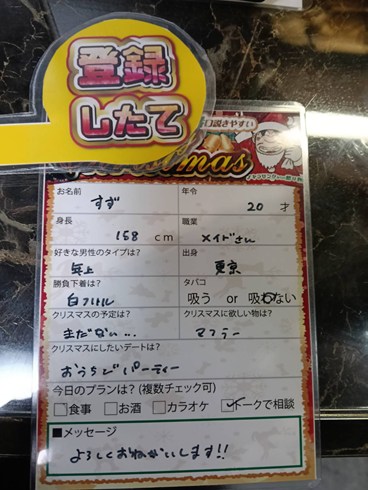 登録
したて
口説きやすい
mas
お名前 すず
年令 20 才
身長 158 cm
職業 メイドさん
好きな男性のタイプは? 年上
出身 東京
勝負下着は? 白フリル
タバコ 吸う or 吸わない
クリスマスの予定は? まだない...
クリスマスに欲しい物は? マフラー
クリスマスにしたいデートは?
おうちでパーティー
今日のプランは? (複数チェック可)
食事 お酒 カラオケ トークで相談
■メッセージ
よろしくおねがいします!!